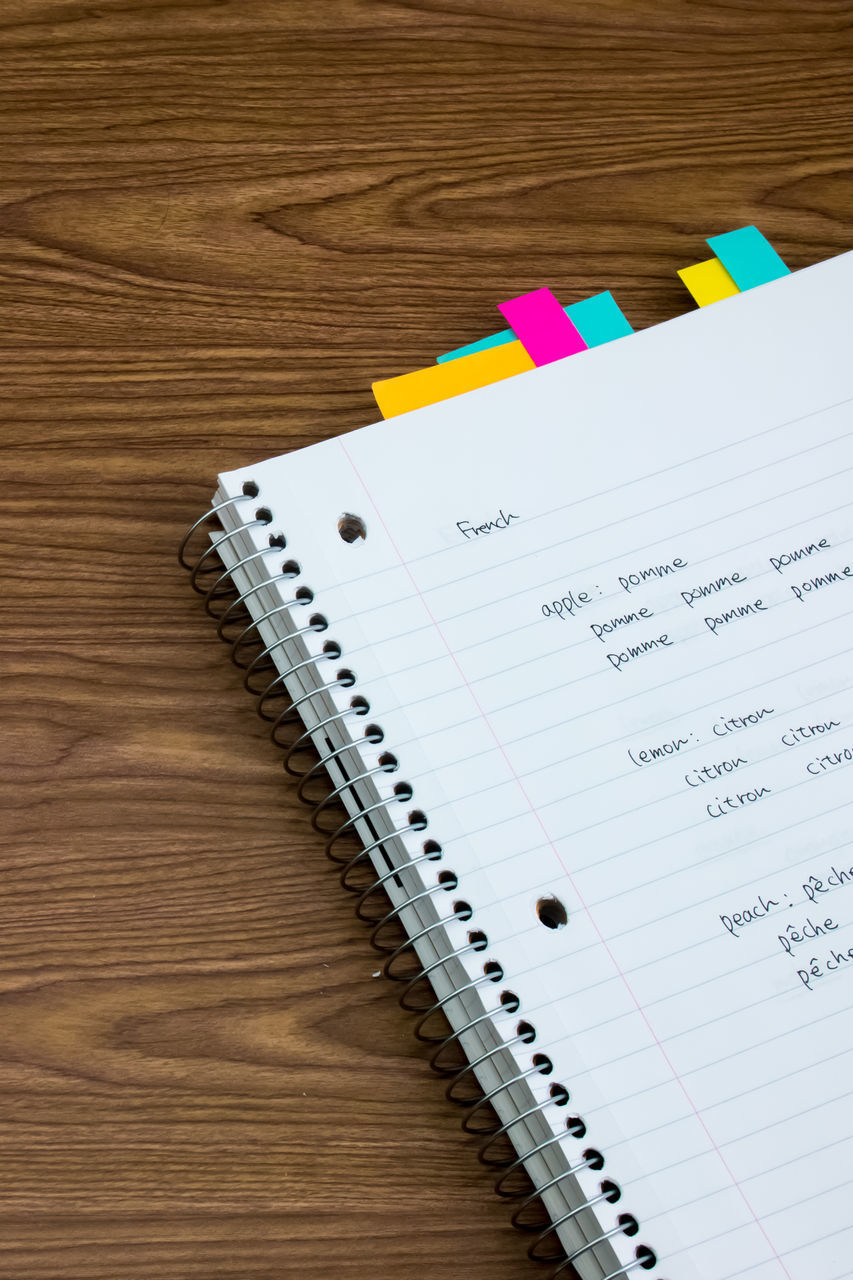 French
apple: pomme
pomme pomme pomme
pomme pomme pomme
lemon: citron
citron citron
citron citro
peach: pêche
pêche
pêche